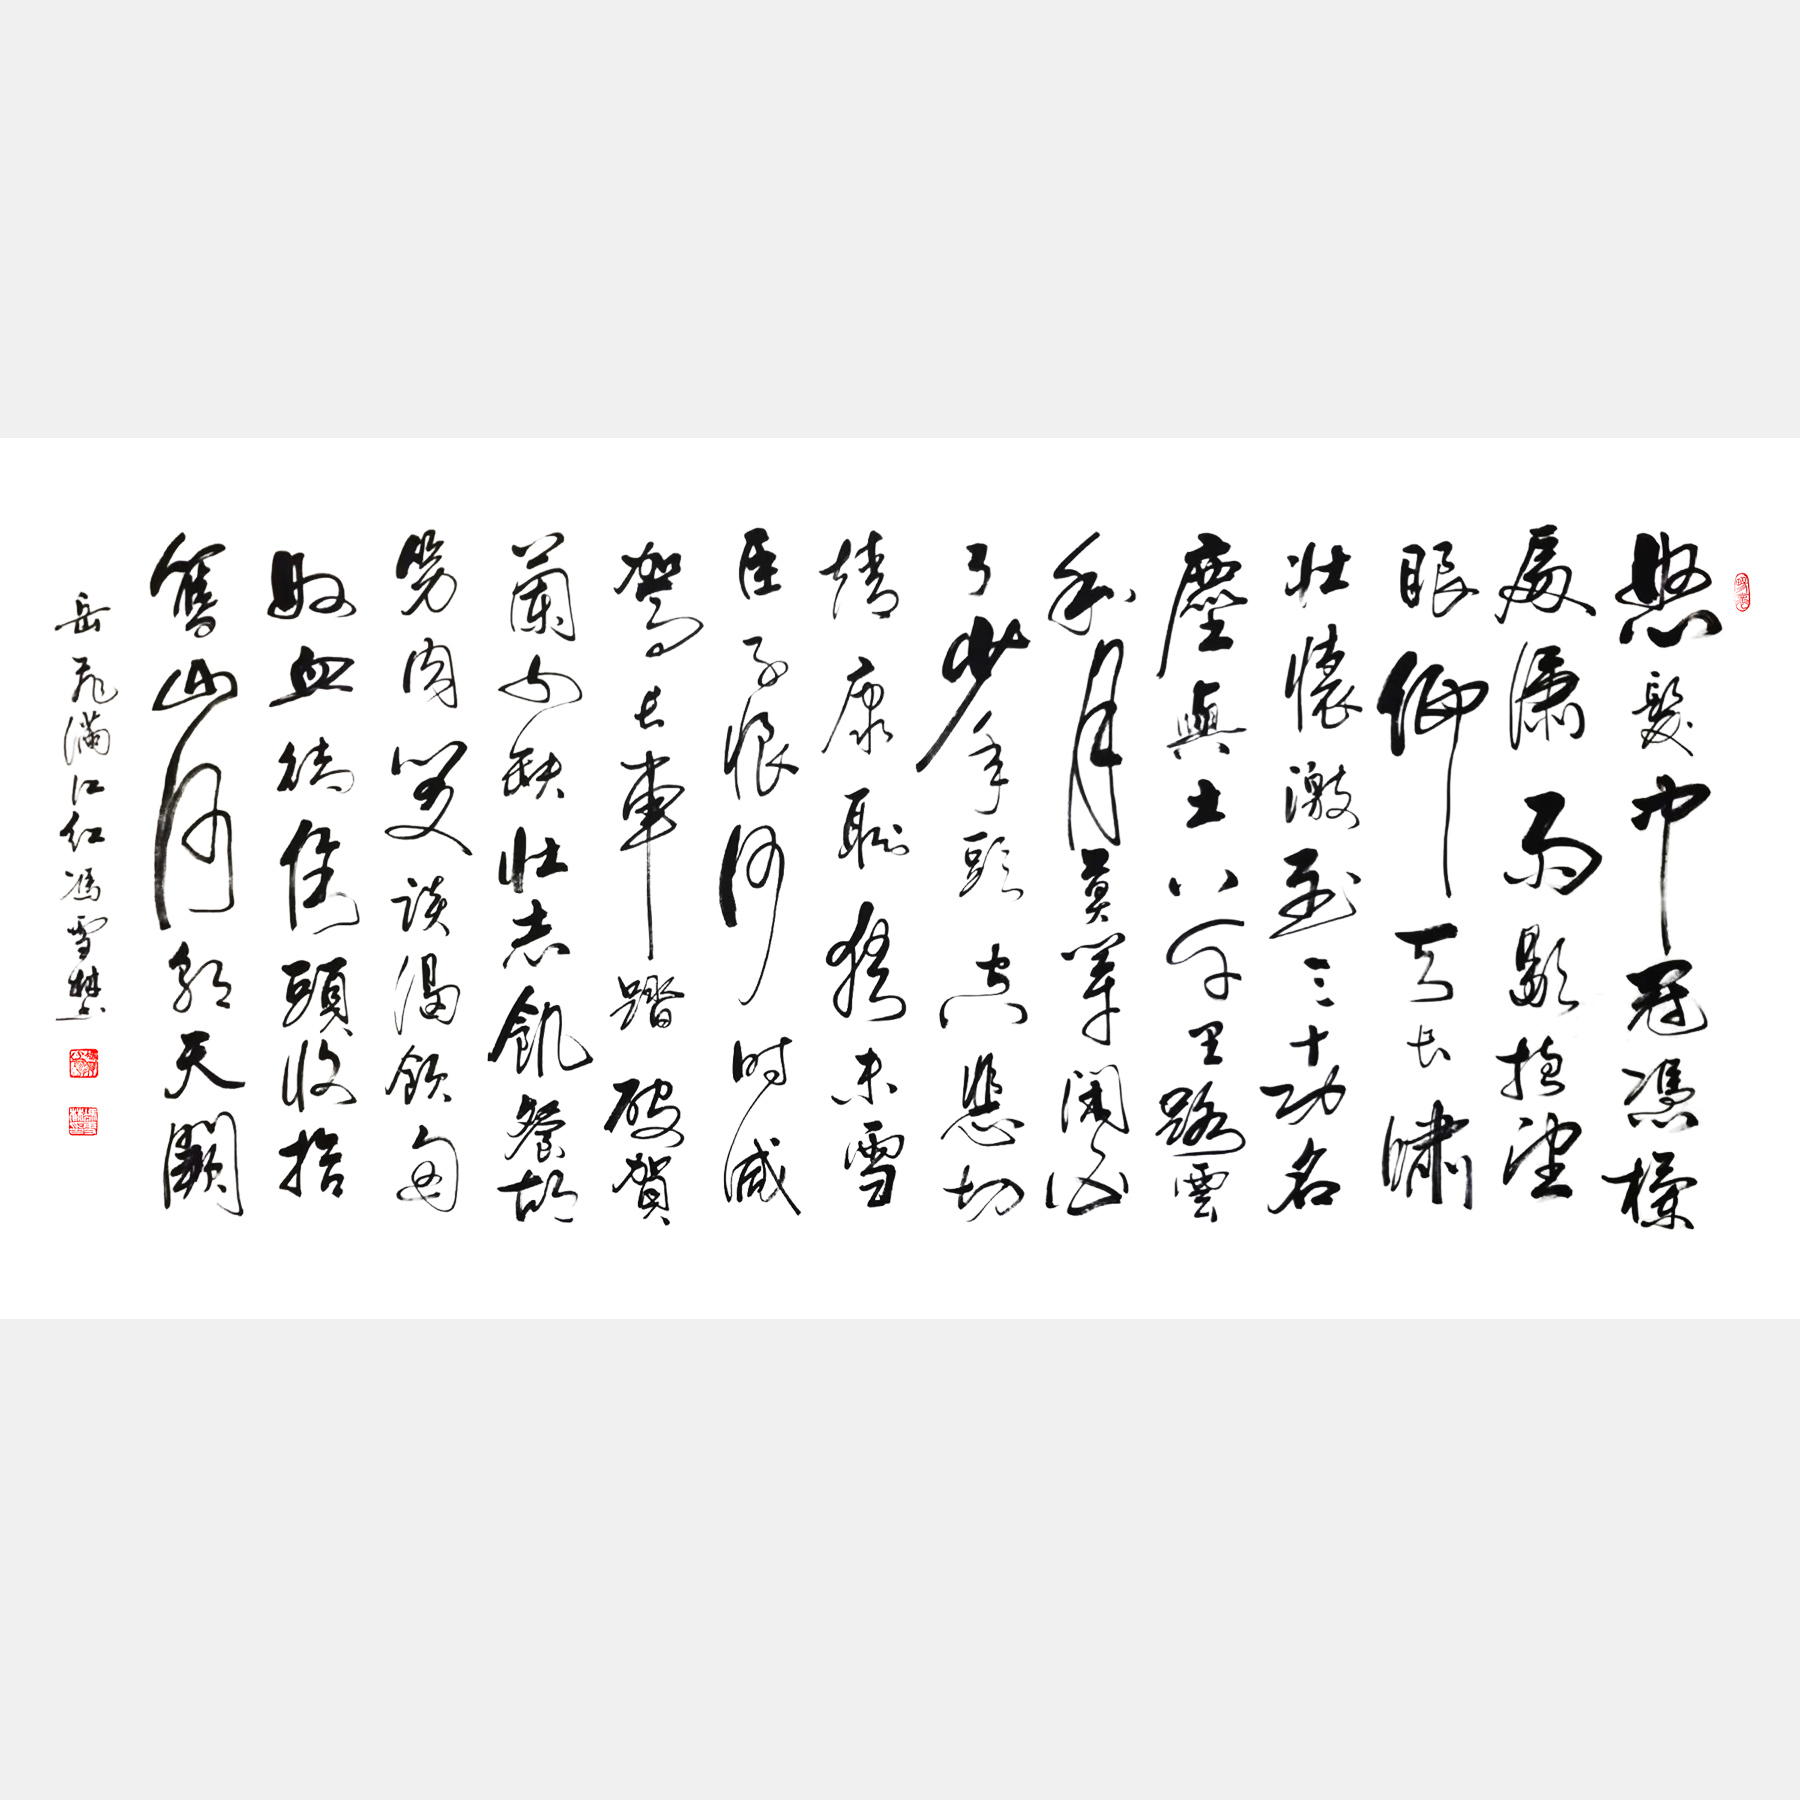 怒髮冲冠憑欄
處瀟雨歇抬望
眼仰天長嘯
壯懷激烈三十功名
塵與土八千里路雲
和月莫等閑白
了少年頭空悲切
靖康恥猶未雪
臣子恨何時滅
駕長車踏破賀
蘭山缺壯志飢餐胡
虜肉笑談渴飲匈
奴血待從頭收拾
舊山河朝天闕
岳飛滿江红馮雪林书